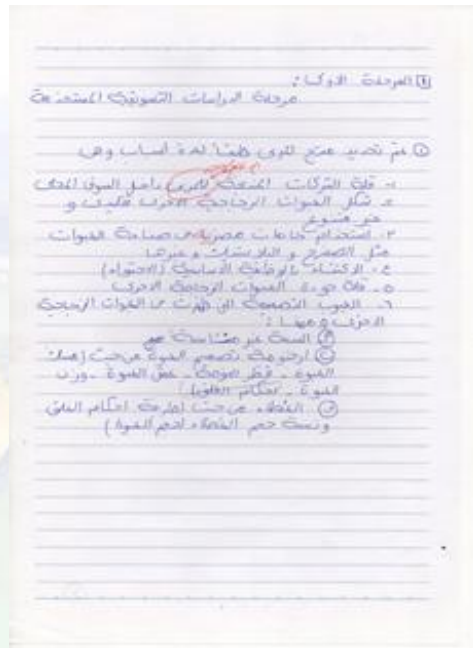 ١ المرحلة الاولى:
مرحلة الدراسات التسويقية
① تم تحديد منتج المربى طبقاً لعدة أسباب وهى
١- قلة الشركات المنتجة للمربى داخل السوق المحلى
٢- شكل العبوات الزجاجية الاخرى و
غير متنوع
٣- استخدام خامات مصرية فى صناعة العبوات
مثل الصفيح و البلاستيك و غيرها
٤- الاكتفاء بالوظيفة الأساسية (الاحتواء)
٥- قلة جودة العبوات الزجاجية الاخرى
٦- العيوب التصميمية التى ظهرت فى العبوات الزجاجية
الاخرى ومنها:
السعة غير مناسبة
تصميم العبوة من حيث (
العبوة - قطر - عمق العبوة - وزن
العبوة - احكام الغلق)
الغطاء من حيث ( احكام الغلق
ونسبة حجم الغطاء لحجم العبوة)